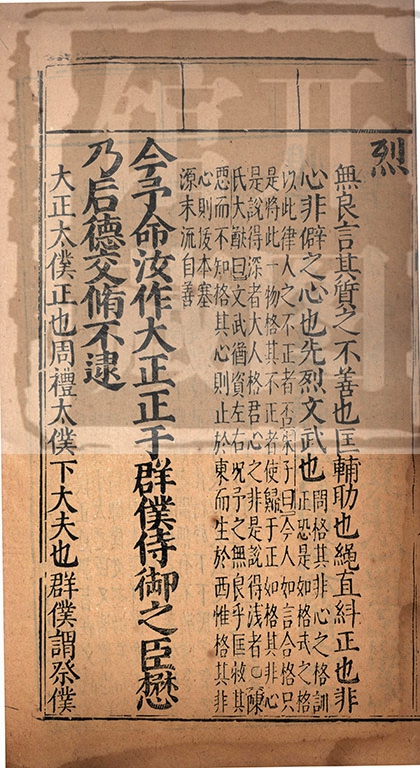 烈
無良言其質之不善也匡輔助也繩直糾正也非
心非僻之心也先烈文武也
問格其非心之格訓
正恐是如格式之格
以此律人之不正者否朱子曰今人如言合格只
是將此一物格其不正者使歸于正如格其非心
是說得深者大人格君心之非是說得浅者○陳
氏大猷曰文武猶資左右况予之無良乎匡救其
惡而不知格其心則止於東而生於西惟格其非
心則拔本塞
源末流自善
今予命汝作大正正于群僕侍御之臣懋
乃后德交脩不逮
大正太僕正也周禮太僕下大夫也群僕謂祭僕